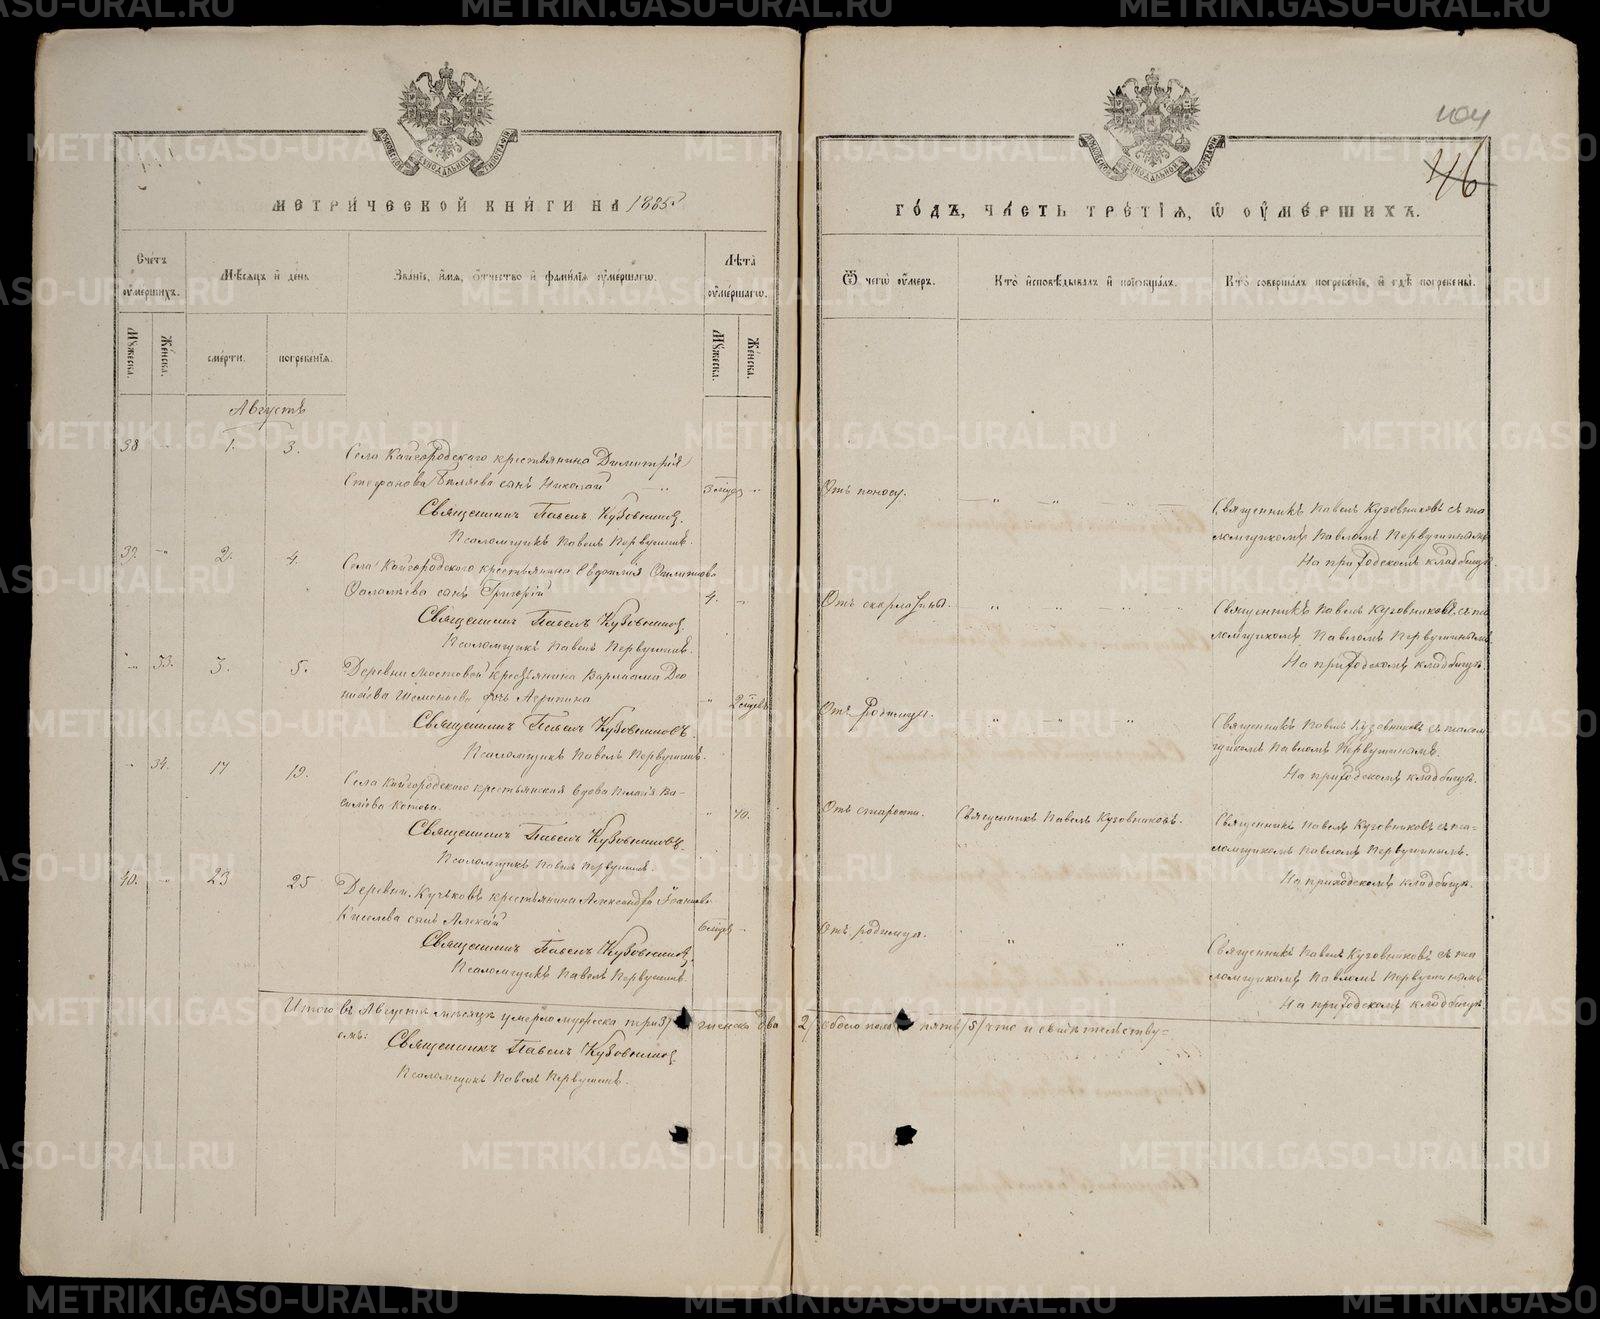 МЕТРИЧЕСКОЙ КНИГИ НА 1885.
Счетъ умершихъ.
Мѣсяцъ и день
Званіе, имя, отчество и фамилія умершаго.
Лѣта умершаго.
Мужеска.
Женска.
смерти.
погребенія.
Мужеска.
Женска.
Августъ
38 1. 3.
Села Кайгородскаго крестьянина Димитрія
Стефанова Бѣляева сынъ Николай
3 мѣсяц
Священникъ Павелъ Кузовниковъ.
Псаломщикъ Павелъ Первушинъ.
39. 2. 4.
Села Кайгородскаго крестьянина
сынъ Григорій
4.
Священникъ Павелъ Кузовниковъ.
Псаломщикъ Павелъ Первушинъ.
33. 3. 5.
Деревни Мостовой крестьянина Варлаама Део
нисіева дочь Агрипина
2 мѣсяцевъ
Священникъ Павелъ Кузовниковъ.
Псаломщикъ Павелъ Первушинъ.
34. 17 19.
Села Кайгородскаго крестьянская вдова Ва-
силіева Котова.
70.
Священникъ Павелъ Кузовниковъ.
Псаломщикъ Павелъ Первушинъ.
40. 23 25
Деревни крестьянина Александра Іоаннова
Киселева сынъ Алексій
6 мѣсяц
Священникъ Павелъ Кузовниковъ.
Псаломщикъ Павелъ Первушинъ.
Итого въ Августѣ мѣсяцѣ умерло мужеска три 3/ женска два
емъ: Священникъ Павелъ Кузовниковъ.
Псаломщикъ Павелъ Первушинъ.
104
46
ГОДЪ, ЧАСТЬ ТРЕТІЯ, Ѡ ОУМЕРШИХЪ.
Ѿ чего умеръ.
Кто исповѣдывалъ и пріобщалъ.
Кто совершалъ погребеніе, и гдѣ погребены.
Отъ поноса.
Священникъ Павелъ Кузовниковъ съ пса
ломщикомъ Павломъ Первушинымъ
На приходскомъ кладбищѣ.
Отъ скарлатины.
Священникъ Павелъ Кузовниковъ съ пса
ломщикомъ Павломъ Первушинымъ
На приходскомъ кладбищѣ.
Отъ родимца.
Священникъ Павелъ Кузовниковъ съ псалом
щикомъ Павломъ Первушинымъ.
На приходскомъ кладбищѣ.
Отъ старости.
Священникъ Павелъ Кузовниковъ.
Священникъ Павелъ Кузовниковъ съ пса-
ломщикомъ Павломъ Первушинымъ.
На приходскомъ кладбищѣ.
Отъ родимца.
Священникъ Павелъ Кузовниковъ съ пса
ломщикомъ Павломъ Первушинымъ
На приходскомъ кладбищѣ
2/ обоего пола пять /5/ что и свидѣтельству-
METRIKI.GASO-URAL.RU